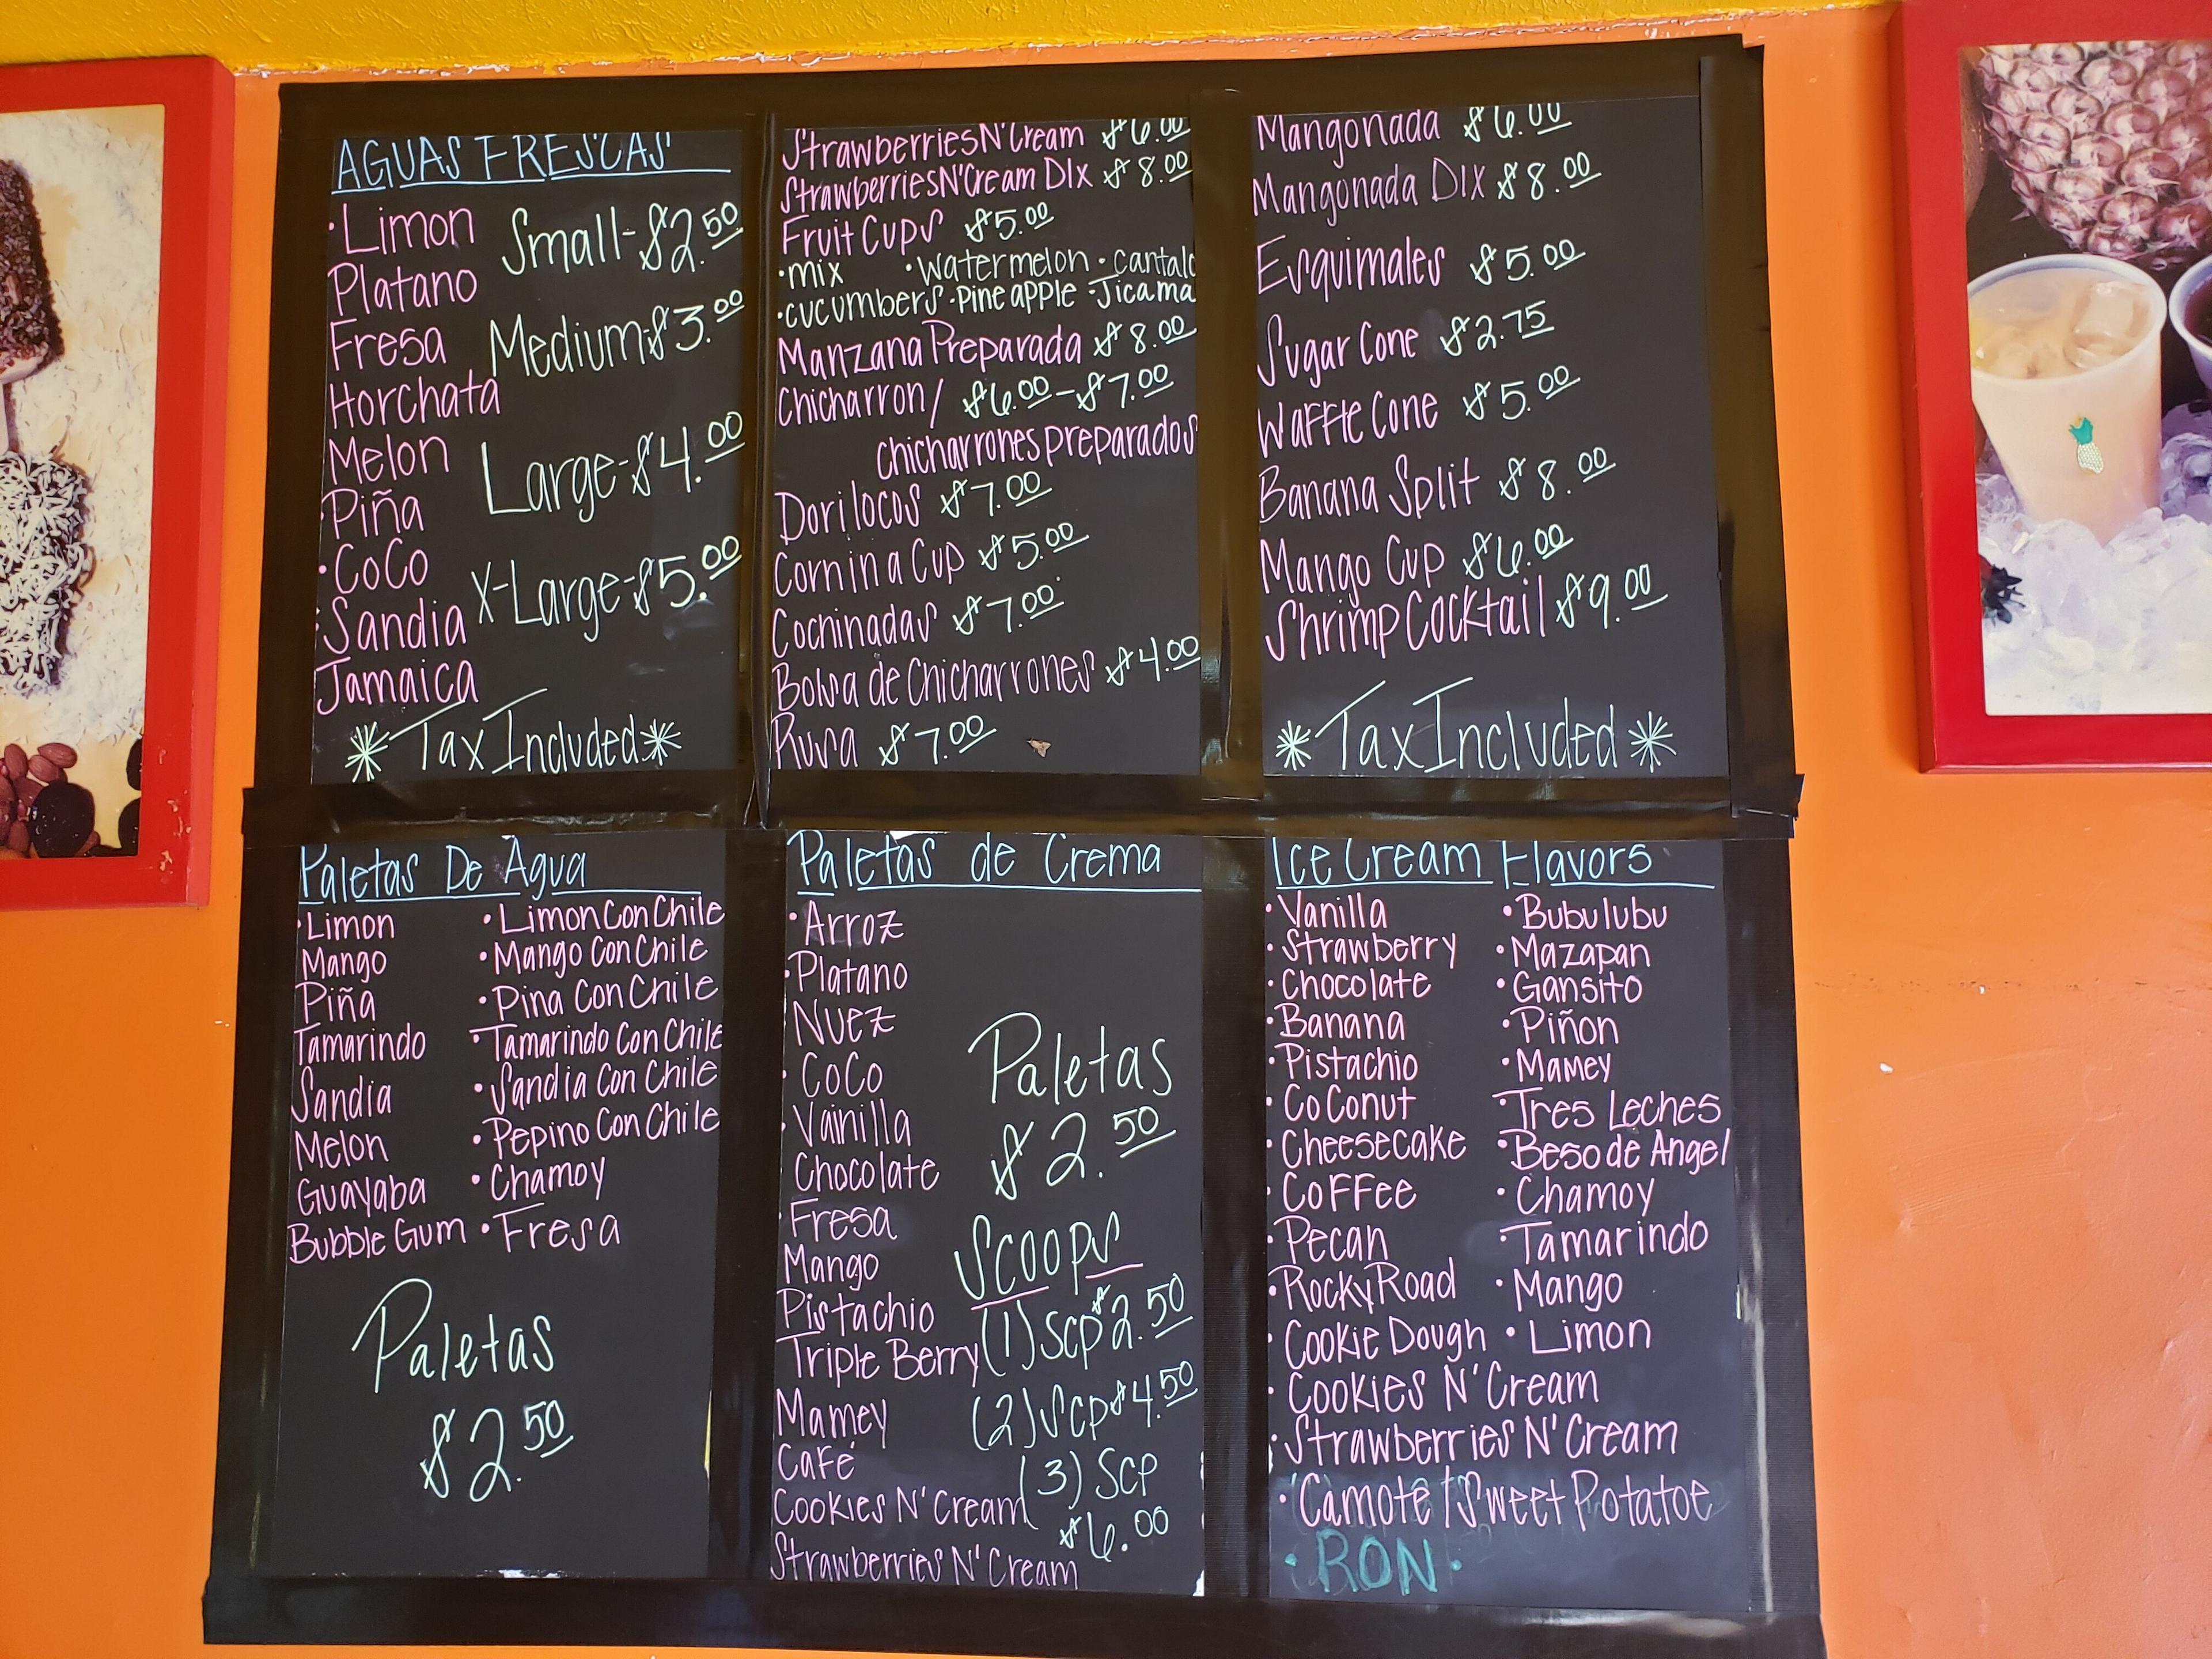 AGUAS FRESCAS
• Limon
Platano
Fresa
Horchata
Melon
Piña
• CoCo
Sandia
Jamaica
Small-$2.50
Medium-$3.00
Large-$4.00
X-Large-$5.00
* Tax Included *
Strawberries N' Cream $6.00
Strawberries N' Cream Dlx $8.00
Fruit Cups $5.00
• mix • watermelon • cantalo
• cucumbers • Pineapple • Jicama
Manzana Preparada $8.00
Chicharron/ $6.00-$7.00
Chicharrones preparados
Dorilocos $7.00
Corn in a Cup $5.00
Cochinadas $7.00
Bolsa de Chicharrones $4.00
Rusa $7.00
Mangonada $6.00
Mangonada Dlx $8.00
Esquimales $5.00
Sugar Cone $2.75
Waffle Cone $5.00
Banana Split $8.00
Mango Cup $6.00
Shrimp Cocktail $9.00
* Tax Included *
Paletas De Agua
• Limon
Mango
Piña
Tamarindo
Sandia
Melon
Guayaba
Bubble Gum
• Limon Con Chile
• Mango Con Chile
• Pina Con Chile
• Tamarindo Con Chile
• Sandia Con Chile
• Pepino Con Chile
• Chamoy
• Fresa
Paletas
$2.50
Paletas de Crema
• Arroz
• Platano
Nuez
• CoCo
Vainilla
Chocolate
Fresa
Mango
Pistachio
Triple Berry
Mamey
Café
Cookies N' Cream
Strawberries N' Cream
Paletas
$2.50
Scoops
(1) Scp $2.50
(2) Scp $4.50
(3) Scp
$6.00
Ice Cream Flavors
• Vanilla
• Strawberry
• Chocolate
• Banana
• Pistachio
• CoConut
• CheeseCake
• Coffee
• Pecan
• Rocky Road
• Cookie Dough
• Cookies N' Cream
• Strawberries N' Cream
• Camote/Sweet Potatoe
• RON •
• Bubulubu
• Mazapan
• Gansito
• Piñon
• Mamey
• Tres Leches
• Beso de Angel
• Chamoy
• Tamarindo
• Mango
• Limon